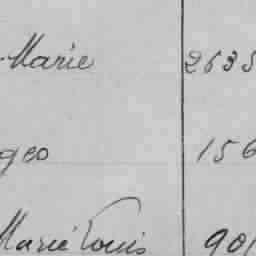 Marie 2635
geo 156
Marie Louis 901